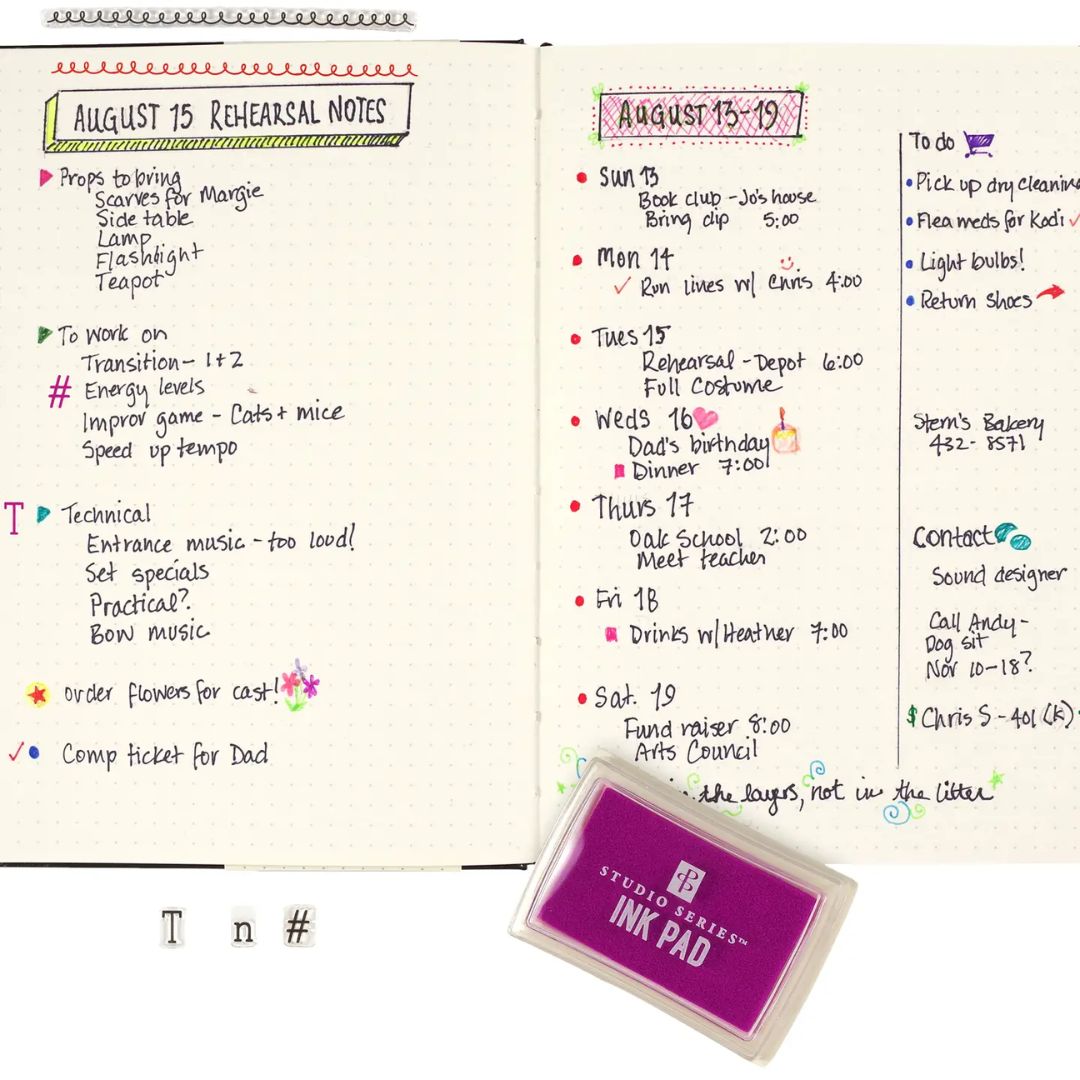 AUGUST 15 REHEARSAL NOTES
Props to bring
Scarves for Margie
Side table
Lamp
Flashlight
Teapot
To work on
Transition - 1+2
# Energy levels
Improv game - Cats + mice
Speed up tempo
T Technical
Entrance music - too loud!
Set specials
Practical?
Bow music
order flowers for cast!
Comp ticket for Dad
AUGUST 13-19
Sun 13
Book club - Jo's house
Bring dip 5:00
Mon 14
Run lines w/ Chris 4:00
Tues 15
Rehearsal - Depot 6:00
Full Costume
Weds 16
Dad's birthday
Dinner 7:00
Thurs 17
Oak School 2:00
Meet teacher
Fri 18
Drinks w/Heather 7:00
Sat. 19
Fund raiser 8:00
Arts Council
To do
Pick up dry cleanin
Flea meds for Kodi
Light bulbs!
Return shoes
Stern's Bakery
432-8571
Contact
Sound designer
Call Andy -
Dog sit
Nov 10-18?
$ Chris S - 401(k)
the layers, not in the litter
STUDIO SERIES™
INK PAD
T n #